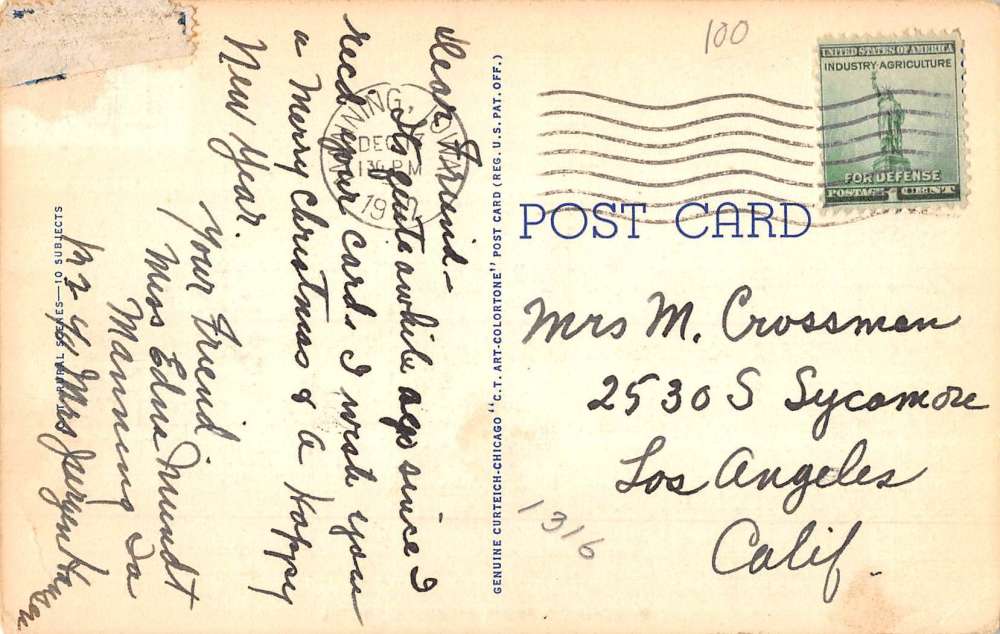 Dear Friend-
Its quite awhile ago since I
recd your cards I wish you
a Merry Christmas & a Happy
New Year.
Your Friend
Miss Edna Mundt
Manning Ia
Mrs
RURAL SCENES—10 SUBJECTS
MANNING, IOWA
DEC
1 30 PM
GENUINE CURTEICH-CHICAGO "C.T. ART-COLORTONE" POST CARD (REG. U.S. PAT. OFF.)
100
UNITED STATES OF AMERICA
INDUSTRY·AGRICULTURE
FOR DEFENSE
POSTAGE 1 CENT
POST CARD
Mrs M. Crossman
2530 S Sycamore
Los Angeles
Calif
1316